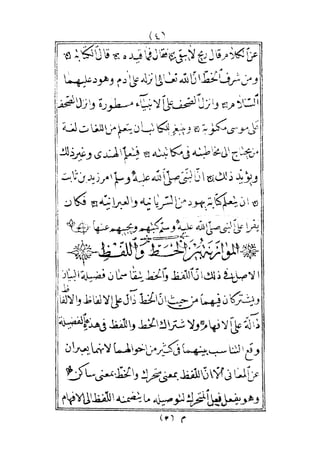 (٤٦)
عن الكلام قال ريح لا يبقى قال فما قيده قال الكتابة
ومن شرف الخط ان الله تعالى انزله على ادم وهود عليهما
السلام وانزل الصحف على الانبياء مسطورة وانزل الصحف
على موسى مكتوبة وينبغى للكاتب ان يتعلم من اللغات لغة
من يحتاج الى مخاطبته فى مكاتبته فيتعلم الهندى وغير ذلك
ويؤيد ذلك ان النبى صلى الله عليه وسلم امر زيد بن ثابت
ان يتعلم كتابة يهود من السريانيه والعبرانيه فكان
يقرا على النبى صلى الله عليه وسلم كتبهم ويجيبهم عنها
الموازنة بين الخط واللفظ
الاصل فى ذلك ان اللفظ والخط يتقاسمان فضيلة البيان
ويشتركان فيهما من حيث ان الخط دال على الالفاظ والالفاظ
دالة على الافهام ولاشتراك الخط واللفظ فى هذه الفضيلة
وقع التناسب بينهما فى كثير من احوالهما لانهما يعبران
عن المعانى الا ان اللفظ بمعنى متحرك والخط بمعنى ساكن
وهو يفعل فعل المتحرك لتوصيله ما يتضمنه اللفظ الى الافهام
م (٥٦)